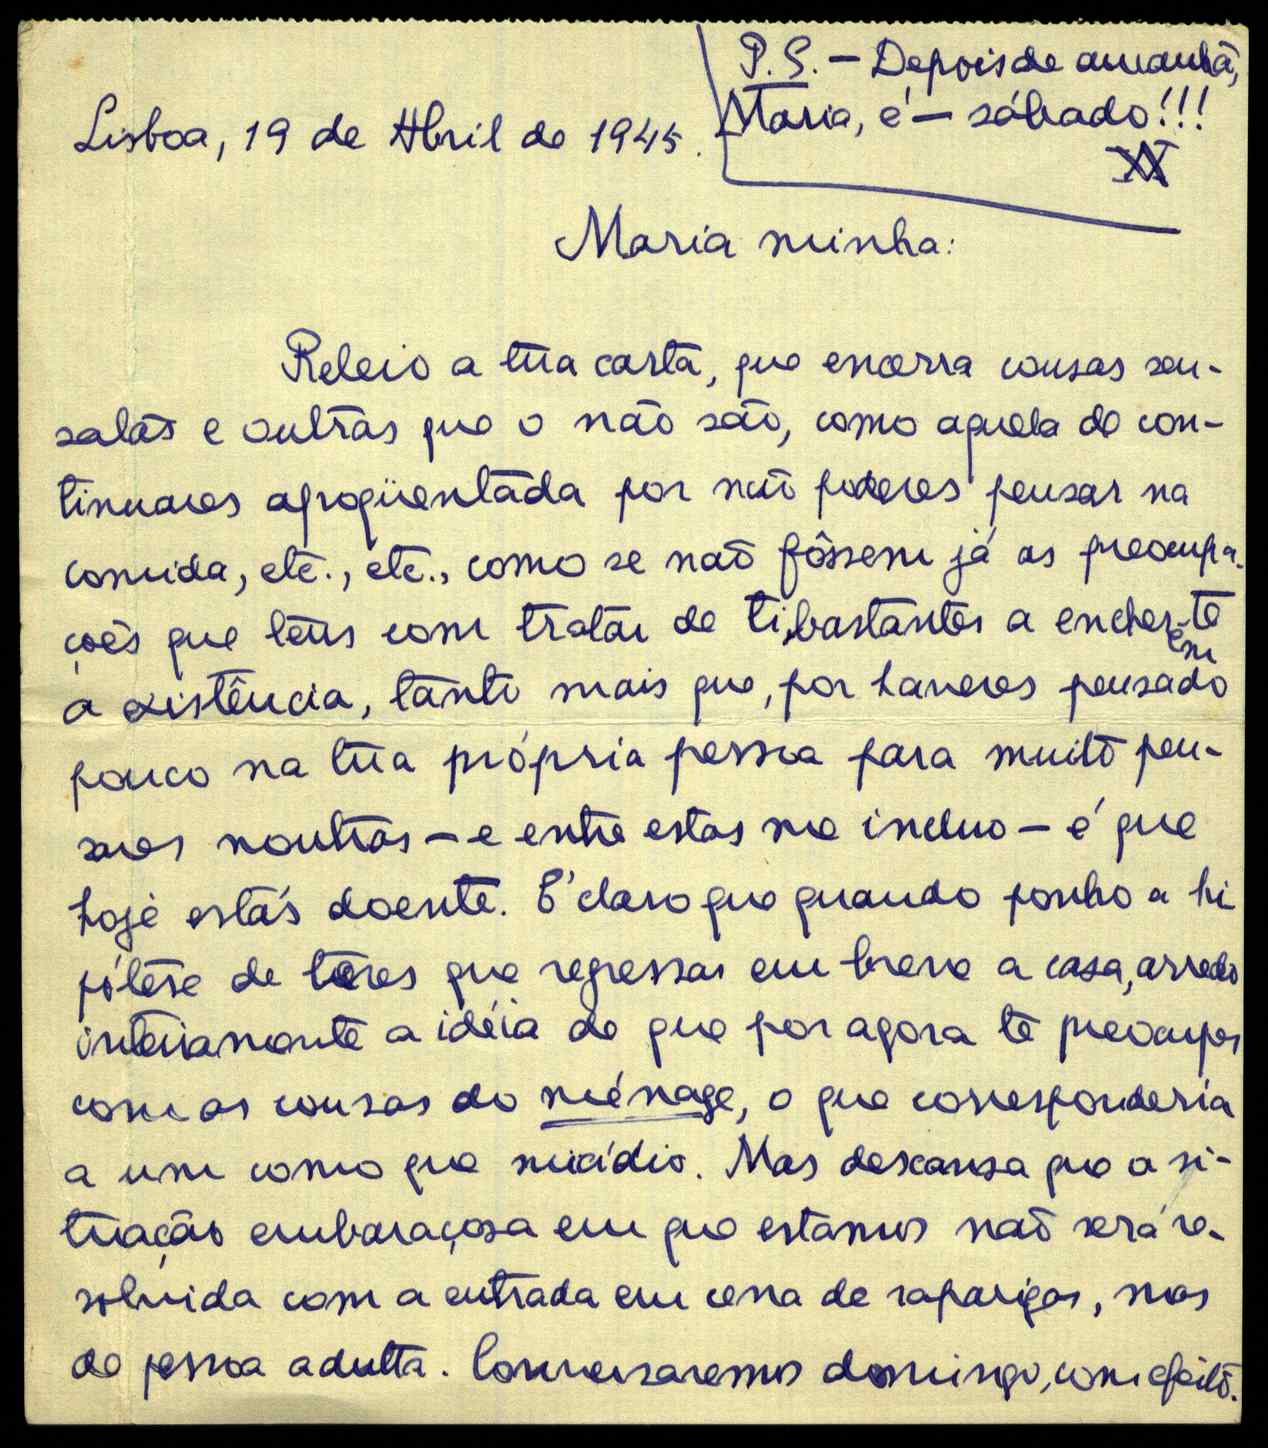 P.S. — Depois de amanhã,
Maria, é — sábado!!!
Lisboa, 19 de Abril de 1945.
Maria minha:
Releio a tua carta, que encerra cousas sen-
satas e outras que o não são, como aquela de con-
tinuares apoqüentada por não poderes pensar na
comida, etc., etc., como se não fôssem já as preocupa-
ções que tens com tratar de ti, bastantes a encher-te
a existência, tanto mais que, por haveres pensado
em
pouco na tua própria pessoa para muito pen-
sares noutras — e entre estas me incluo — é que
hoje estás doente. É claro que quando ponho a hi-
pótese de teres que regressar em breve a casa, arredo
inteiramente a idéia de que por agora te preocupes
com as cousas do ménage, o que corresponderia
a um como que suicídio. Mas descansa que a si-
tuação embaraçosa em que estamos não será re-
solvida com a entrada em cena de raparigas, mas
de pessoa adulta. Conversaremos domingo, com efeito.